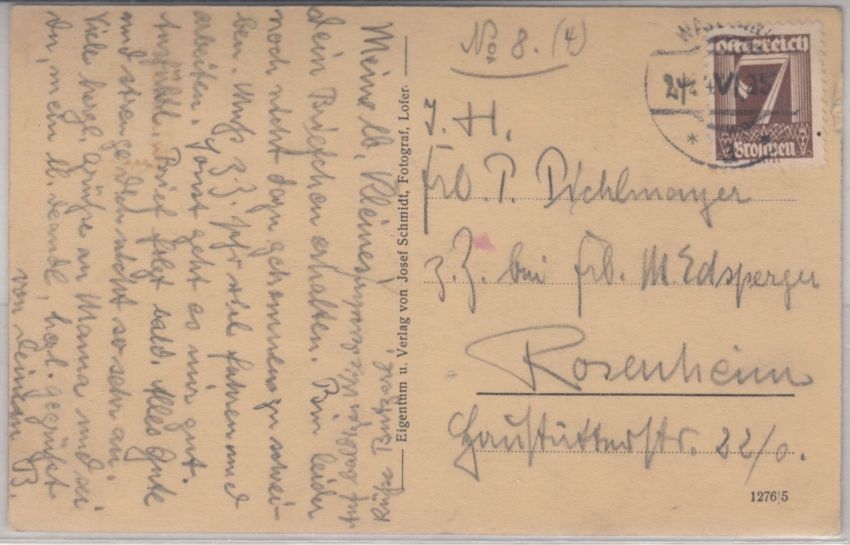 No 8. (4)
Österreich
7
Groschen
24. VI 25
Meine lb. Kleine!
Dein Briefchen erhalten. Bin leider
noch nicht dazu gekommen zu schrei-
ben. Muß z. Z. sehr viel fahren und
arbeiten. Sonst geht es mir gut.
Brief folgt bald. Alles Gute
und strenge dich nicht so sehr an.
Viele herzl. Grüße an Mama und sei
du, mein lb. Deandl, herzl. gegrüßt
von deinem B.
Eigentum u. Verlag von Josef Schmidt, Fotograf, Lofer.
I. H.
Frl. P. Pschlmayer
z. Z. bei Frl. M. Edsperger
Rosenheim
22/0.
1276/5